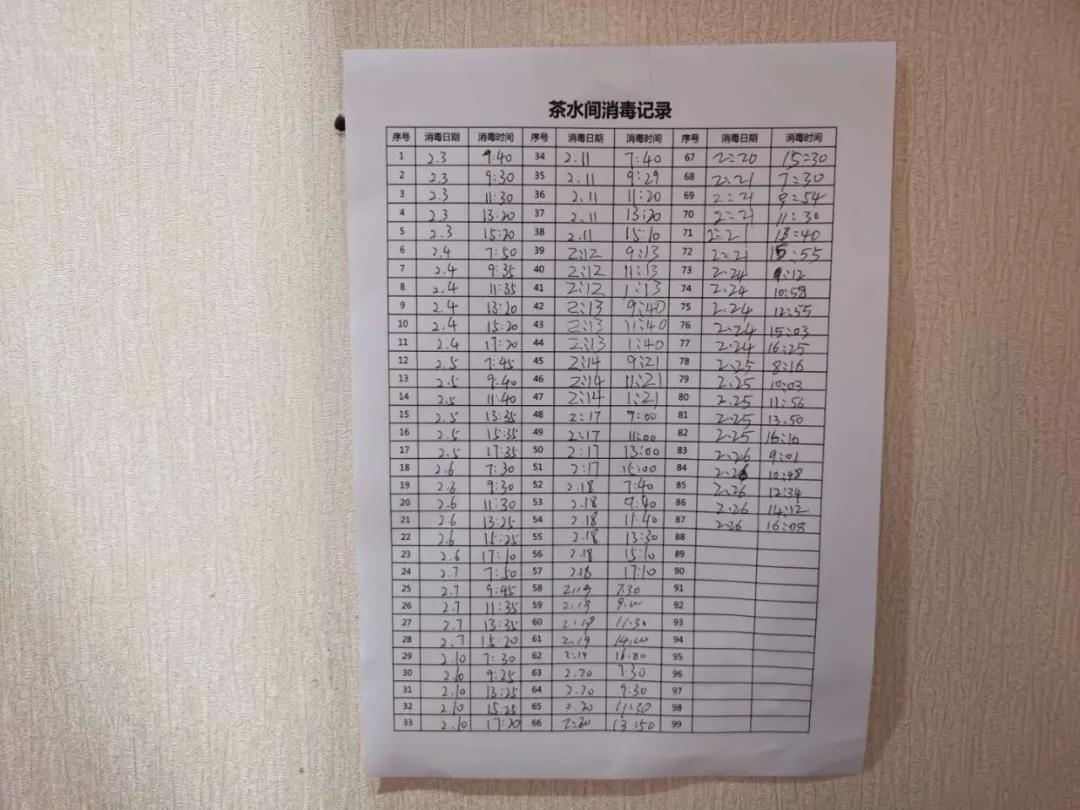 茶水间消毒记录
序号 消毒日期 消毒时间 序号 消毒日期 消毒时间 序号 消毒日期 消毒时间
1 2.3 7:40 34 2.11 7:40 67 2:20 15:30
2 2.3 9:30 35 2.11 9:29 68 2.21 7:30
3 2.3 11:30 36 2.11 11:20 69 2:21 9:54
4 2.3 13:20 37 2.11 13:20 70 2:21 11:30
5 2.3 15:20 38 2.11 15:10 71 2:21 13:40
6 2.4 7:50 39 2:12 9:13 72 2:21 15:55
7 2.4 9:35 40 2:12 11:13 73 2.24 9:12
8 2.4 11:35 41 2:12 1:13 74 2.24 10:58
9 2.4 13:20 42 2:13 9:40 75 2.24 12:55
10 2.4 15:20 43 2:13 11:40 76 2.24 15:03
11 2.4 17:20 44 2:13 1:40 77 2.24 16:25
12 2.5 7:45 45 2:14 9:21 78 2.25 8:16
13 2.5 9:40 46 2:14 11:21 79 2.25 10:03
14 2.5 11:40 47 2:14 1:21 80 2.25 11:56
15 2.5 13:35 48 2:17 9:00 81 2.25 13.50
16 2.5 15:35 49 2:17 11:00 82 2.25 16:10
17 2.5 17:35 50 2:17 13:00 83 2.26 9:01
18 2.6 7:30 51 2:17 15:00 84 2.26 10:48
19 2.6 9:30 52 2.18 7:40 85 2.26 12:34
20 2.6 11:30 53 2.18 9:40 86 2.26 14:12
21 2.6 13:25 54 2.18 11:40 87 2.26 16:08
22 2.6 15:25 55 2.18 13:30 88
23 2.6 17:10 56 2.18 15:10 89
24 2.7 7:50 57 2.18 17:10 90
25 2.7 9:45 58 2.19 7:30 91
26 2.7 11:35 59 2.19 92
27 2.7 13:35 60 2.19 11:30 93
28 2.7 15:20 61 2.19 14:00 94
29 2.10 7:30 62 2.19 16:00 95
30 2.10 9:25 63 2.20 7:30 96
31 2.10 13:25 64 2.20 9:30 97
32 2.10 15:25 65 2.20 98
33 2.10 17:20 66 2:20 13:50 99